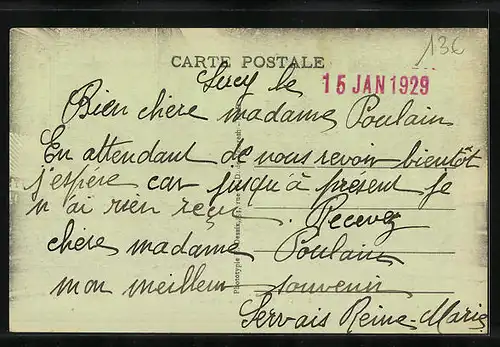 13€
CARTE POSTALE
Sucy le 15 JAN 1929
Bien chère madame Poulain
En attendant de vous revoir bientôt
j'espére car jusqu'à présent je
n'ai rien reçu. Recevez
chère madame Poulain
mon meilleur souvenir
Servais Reine-Marie
Phototypie